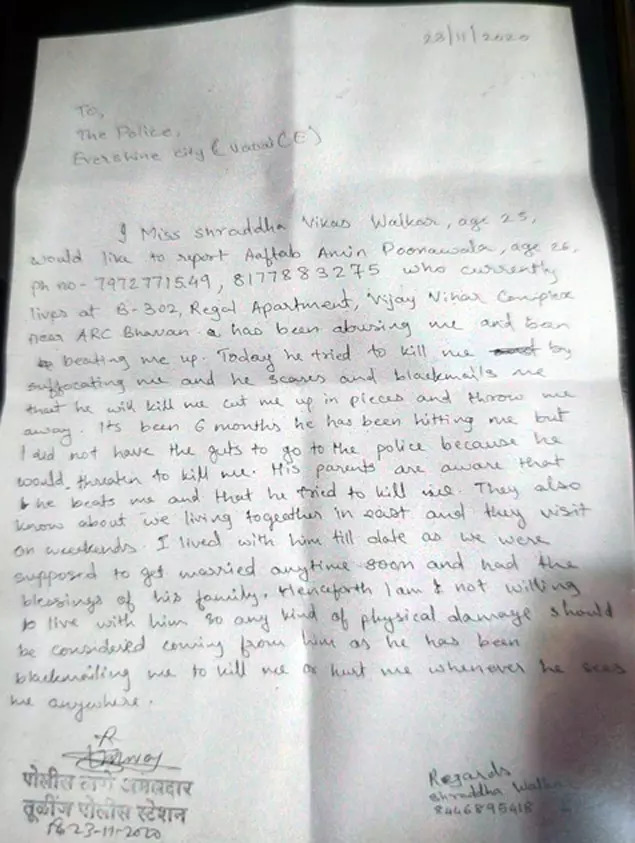 23/11/2020
To,
The Police,
Evershine city (Vasai (E)
I Miss Shraddha Vikas Walkar, age 25,
would like to report Aaftab Amin Poonawala, age 26,
ph no - 7972771549, 8177883275 who currently
lives at B-302, Regal Apartment, Vijay Vihar Complex
near ARC Bhavan. has been abusing me and been
beating me up. Today he tried to kill me by
suffocating me and he scares and blackmails me
that he will kill me cut me up in pieces and throw me
away. Its been 6 months he has been hitting me but
I did not have the guts to go to the police because he
would threaten to kill me. His parents are aware that
he beats me and that he tried to kill me. They also
know about we living togeather in and they visit
on weekends. I lived with him till date as we were
supposed to get married anytime soon and had the
blessings of his family. Henceforth I am not willing
to live with him so any kind of physical damage should
be considered coming from him as he has been
blackmailing me to kill me or hurt me whenever he sees
me anywhere.
पोलीस ठाणे अंमलदार
तूळींज पोलीस स्टेशन
23-11-2020
Regards
Shraddha Walkar
8446895418